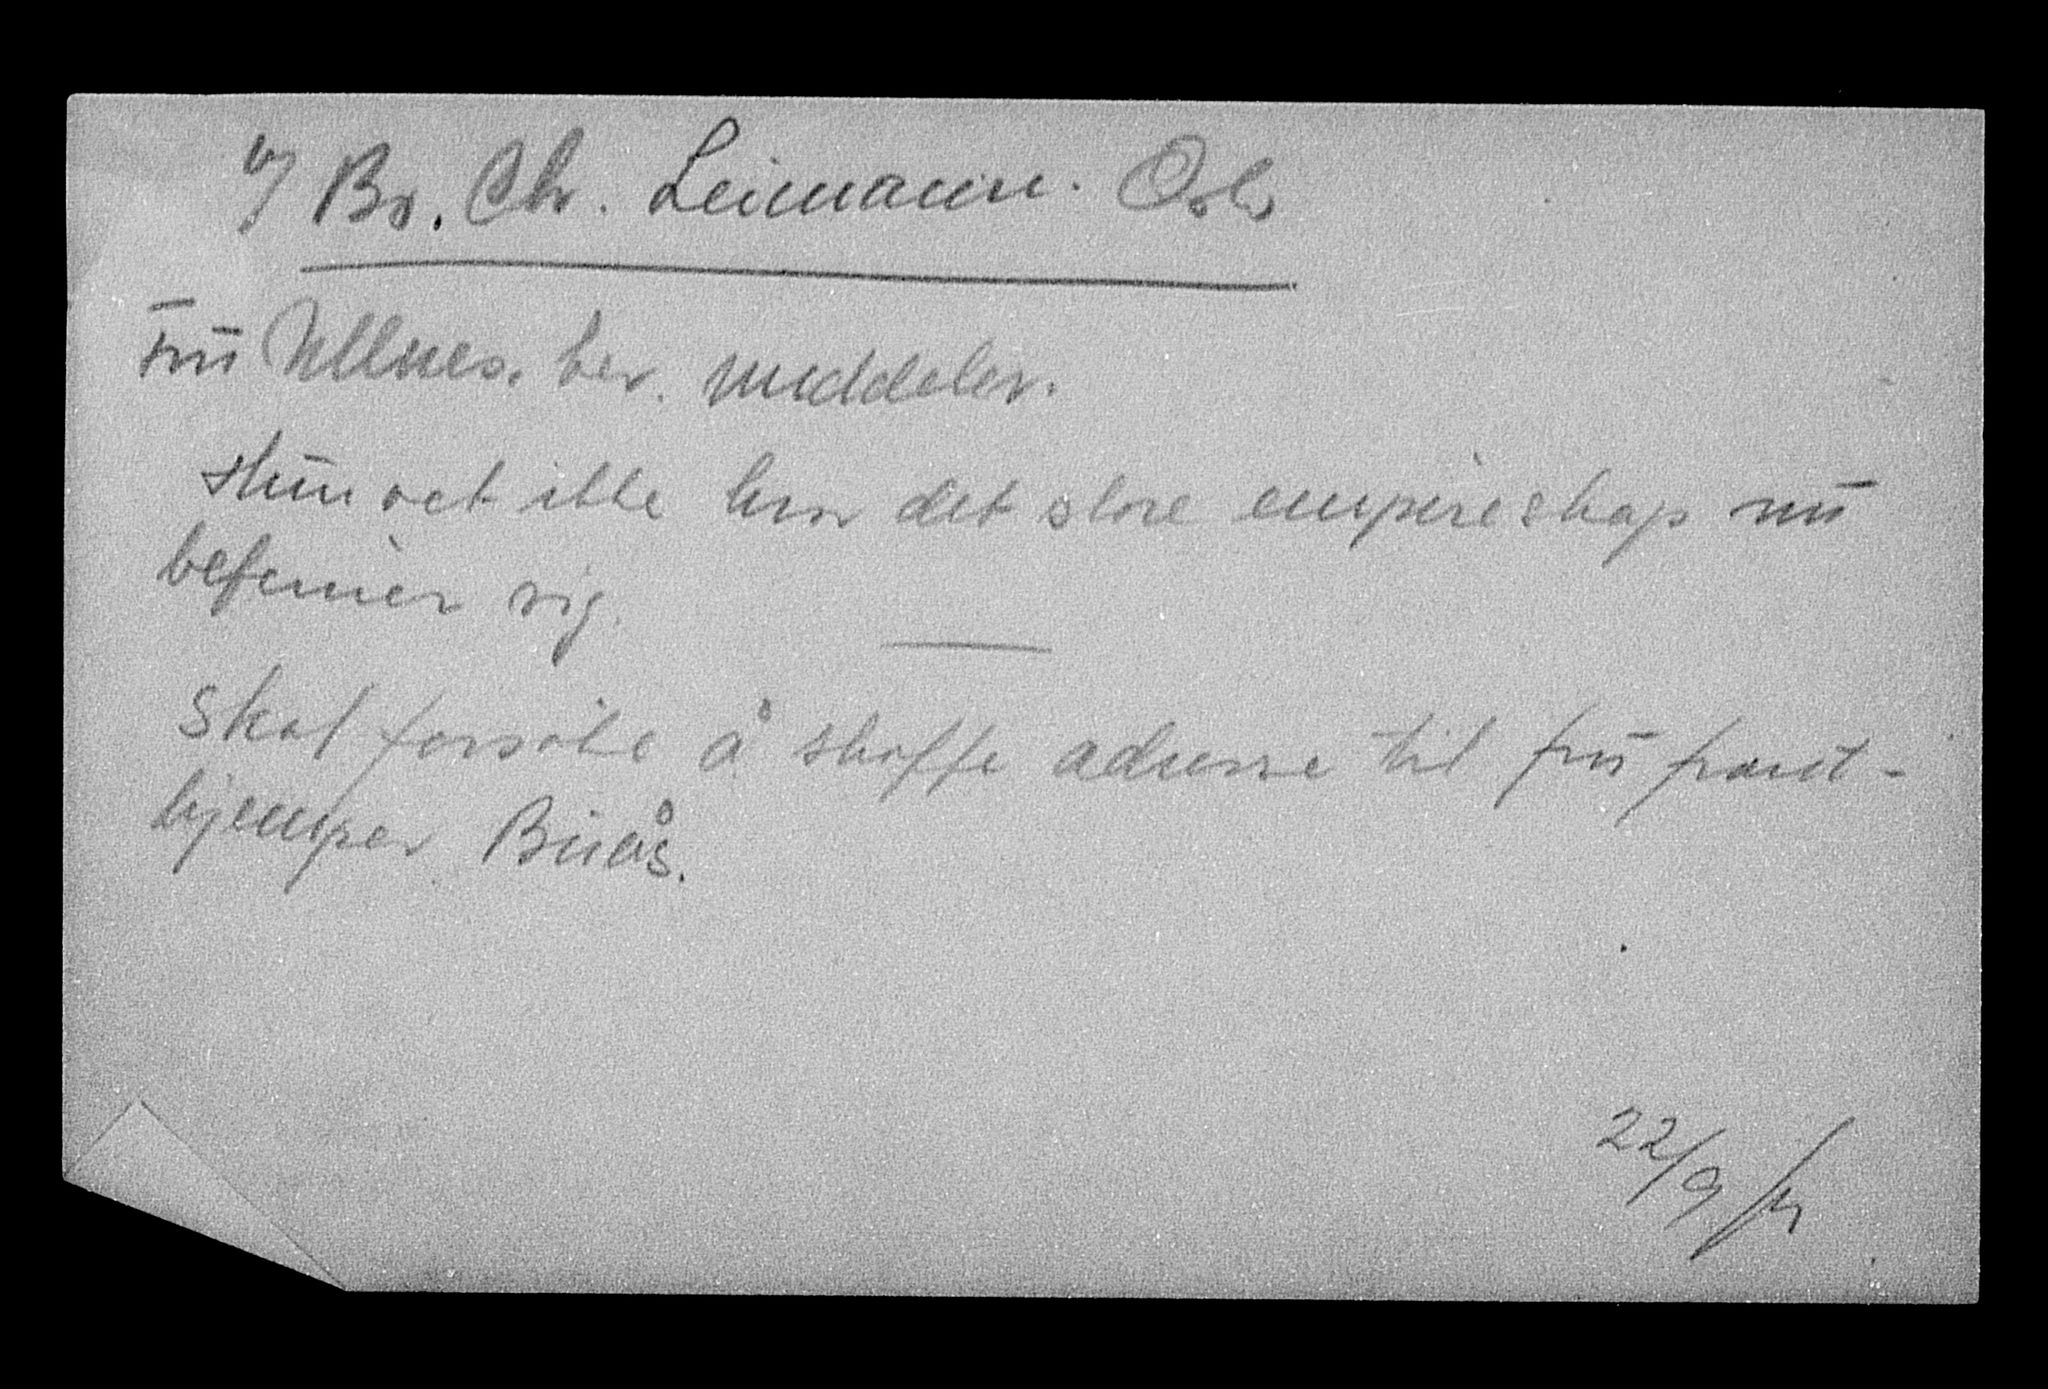 Br. Chr. Leimann. Oslo
Fru Ullnes. ber. meddeler.
Hun vet ikke hvor det store empireskap nu
befinner sig.
Skal forsøke å skaffe adresse til fru front-
kjemper Buås.
22/9